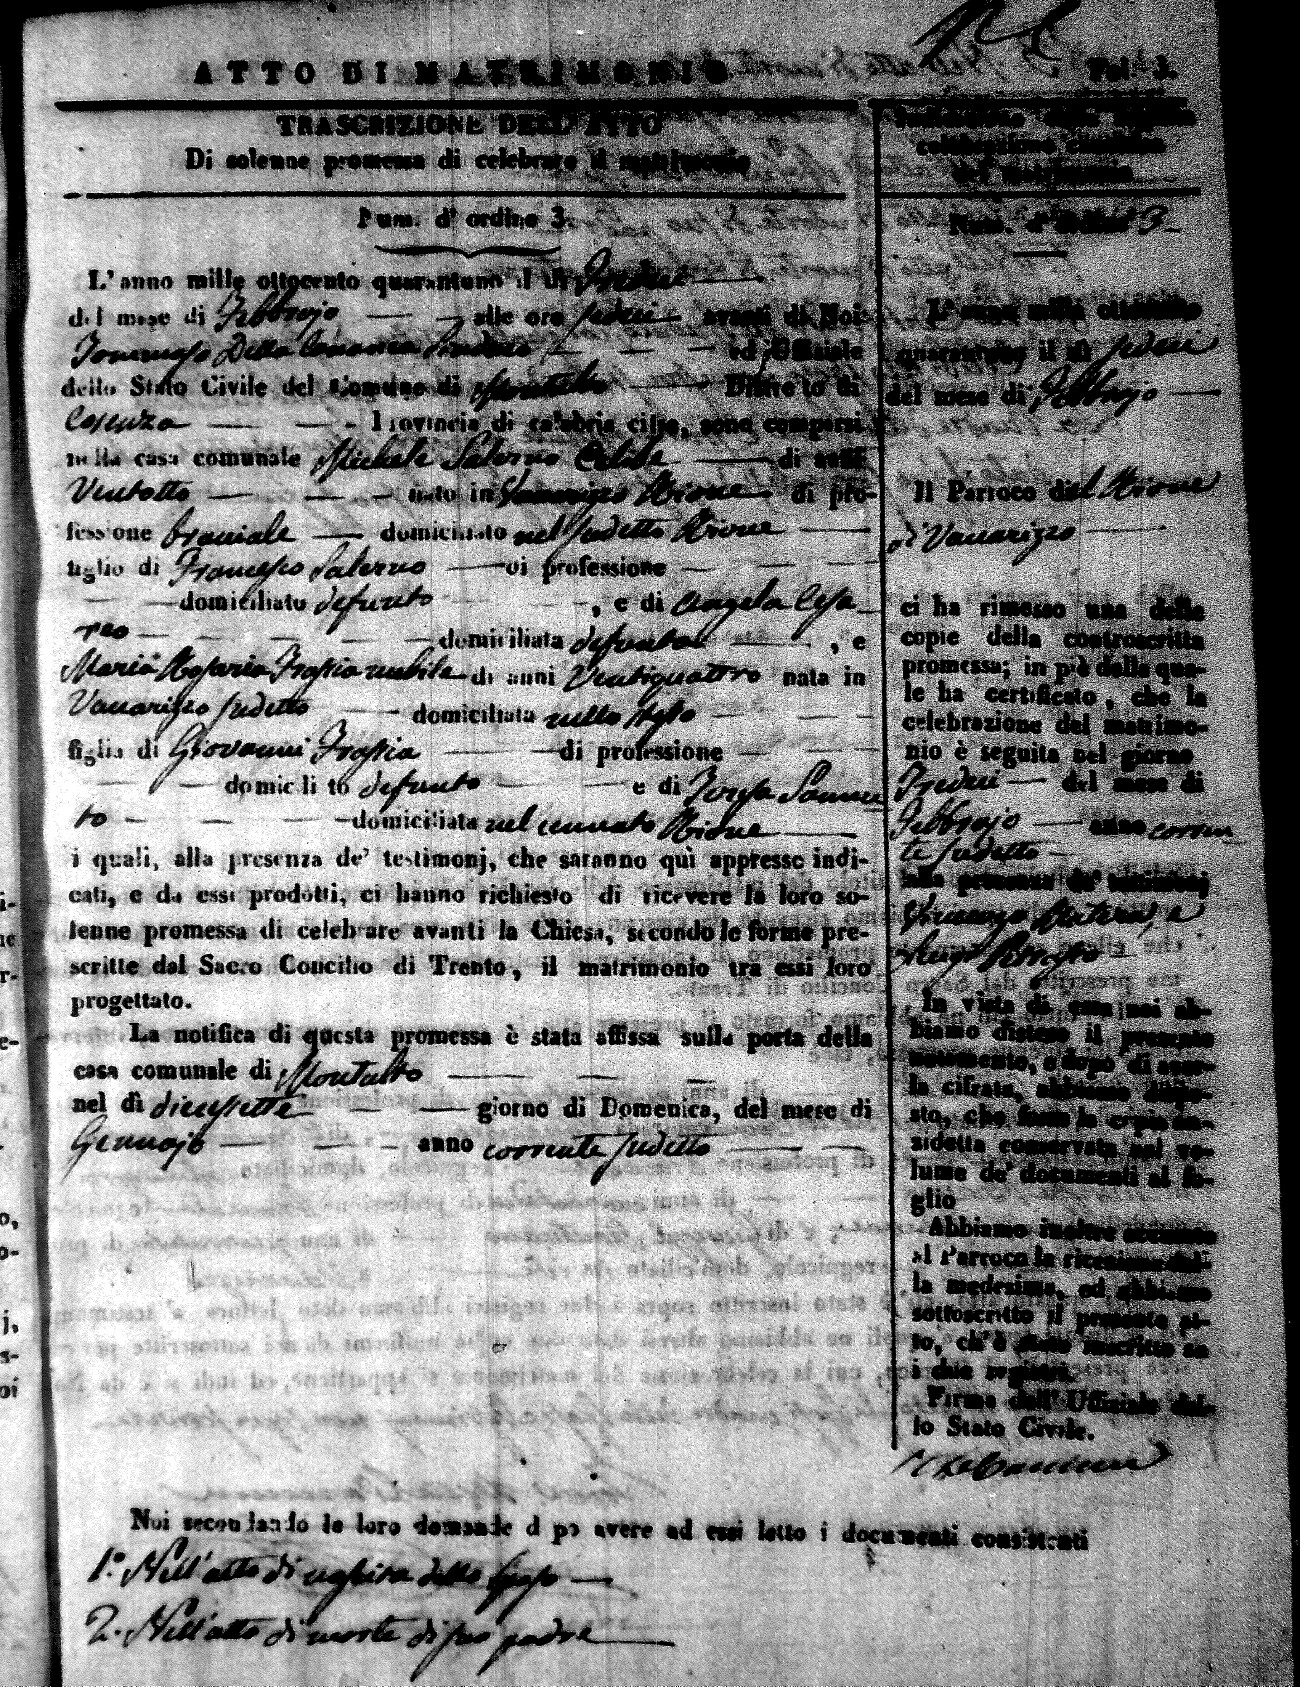 ATTO DI MATRIMONIO
Fol. 3.
TRASCRIZIONE DELL'ATTO
Di solenne promessa di celebrare il matrimonio
Num. d'ordine 3.
L'anno mille ottocento quarantuno il dì Tredici
del mese di Febbrajo alle ore sedici avanti di Noi
Tommaso Della Sindaco ed Uffiziale
dello Stato Civile del Comune di Montalto Distretto di
Cosenza Provincia di calabria citra, sono comparsi
nella casa comunale Michele Salerno Celibe di anni
Ventotto nato in Vaccarizzo Rione di pro-
fessione braciale domiciliato nel sudetto Rione
figlio di Francesco Salerno di professione
domiciliato defunto , e di Angela Cesa
reo domiciliata defunta , e
Maria Rosaria Frassia nubile di anni Ventiquattro nata in
Vaccarizzo sudetto domiciliata nello stesso
figlia di Giovanni Frassia di professione
domiciliato defunto e di Teresa Sannu
to domiciliata nel cennato Rione
i quali, alla presenza de' testimonj, che saranno quì appresso indi-
cati, e da essi prodotti, ci hanno richiesto di ricevere la loro so-
lenne promessa di celebrare avanti la Chiesa, secondo le forme pre-
scritte dal Sacro Concilio di Trento, il matrimonio tra essi loro
progettato.
La notifica di questa promessa è stata affissa sulla porta della
casa comunale di Montalto
nel dì diecisette giorno di Domenica, del mese di
Gennajo anno corrente sudetto
celebrazione canonica
del matrimonio
Num. d'ordine 3
L'anno mille ottocento
quarantuno il dì sedici
del mese di Febbrajo
Il Parroco del Rione
di Vaccarizzo
ci ha rimesso una delle
copie della controscritta
promessa; in piè della qua-
le ha certificato, che la
celebrazione del matrimo-
nio è seguita nel giorno
Tredici del mese di
Febbrajo anno corren
te sudetto
alla presenza de' testimonj
Vincenzo e
Luigi
In vista di essa noi ab-
biamo disteso il presente
notamento, e dopo di aver-
la cifrata, abbiamo dispo-
sto, che fosse la copia an-
zidetta conservata nel vo-
lume de' documenti al fo-
glio
Abbiamo inoltre accusato
al Parroco la ricezione del-
la medesima, ed abbiamo
sottoscritto il presente at-
to, ch'è stato inscritto su
i due registri.
Firma dell'Uffiziale del-
lo Stato Civile.
Noi secondando le loro domande d po avere ad essi letto i documenti consistenti
1.° Nell'atto di nascita dello sposo
2. Nell'atto di morte di suo padre